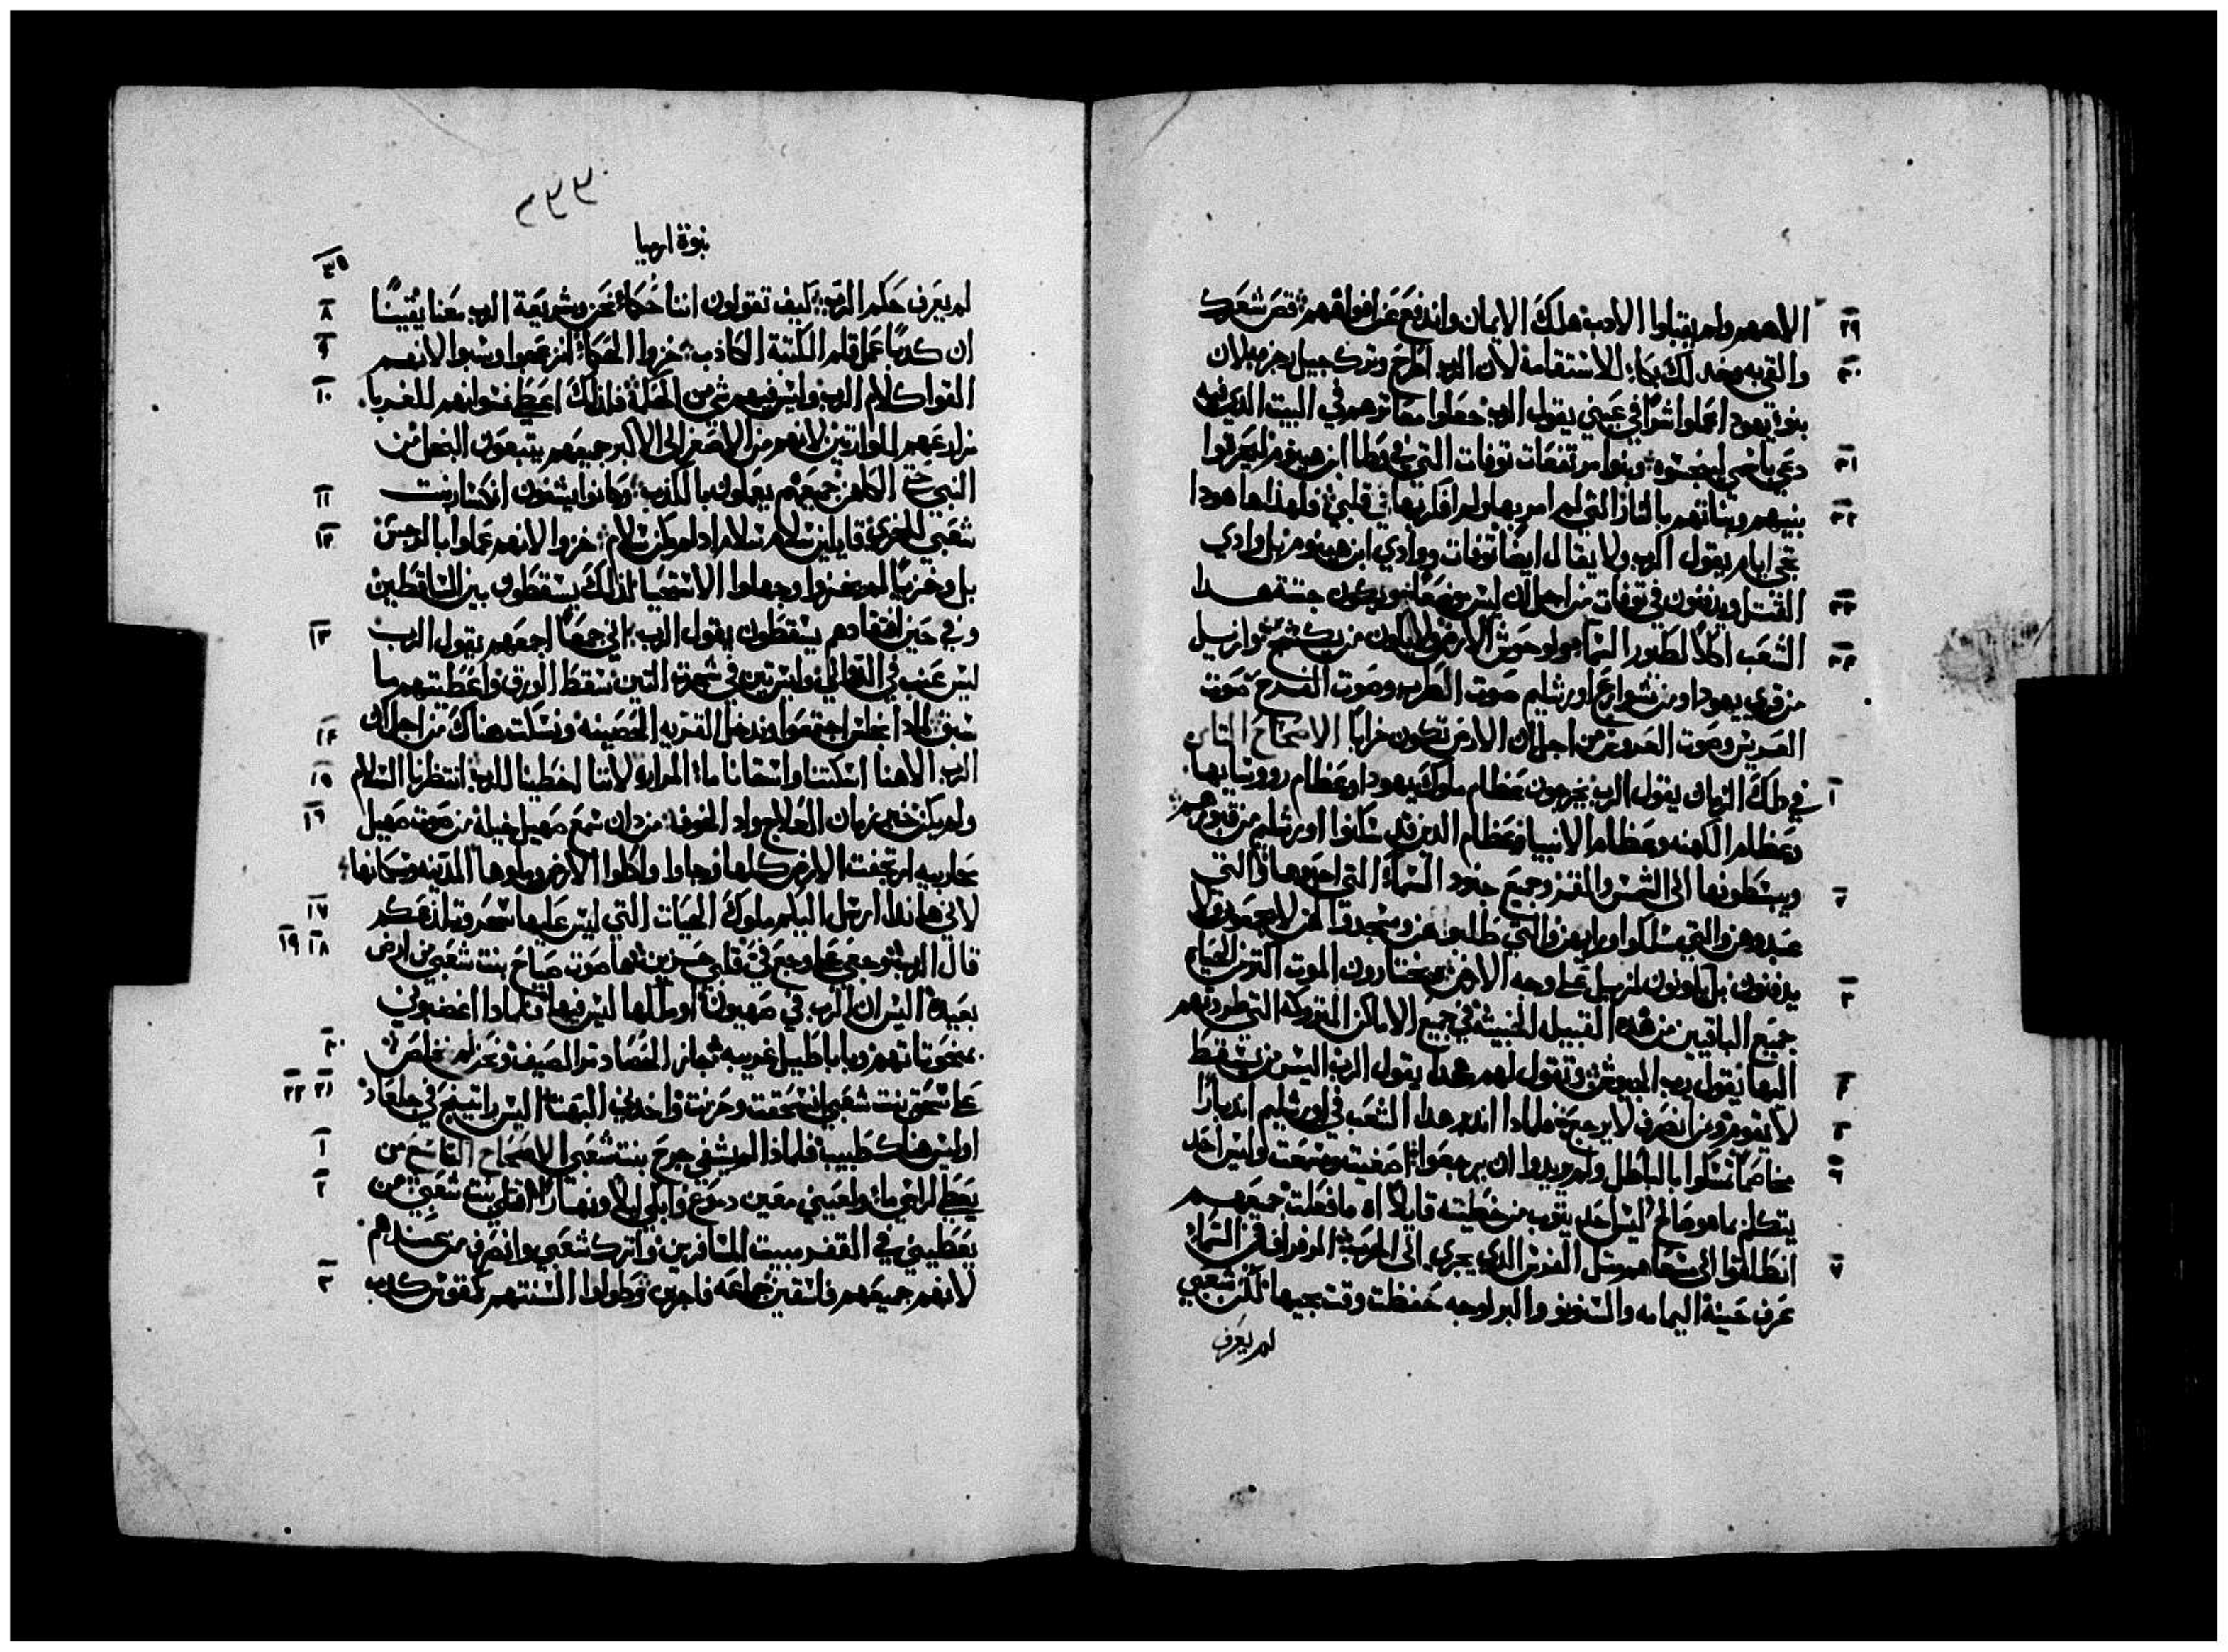 الاههم ولم يقبلوا الادب هلك الايمان واندفع عن افواههم قص شعرك ٢٩
والقيه وخد لك بكاء للاستقامة لان الرب اطرح وترك جيل رجزه لان ٣٠
بنو يهودا عملوا شرا في عيني يقول الرب جعلوا معاثرهم في البيت الذي فيه
دعي باسمي لينجسوه وبنوا مرتفعات توفات التي في وطا ابن هينوم ليحرقوا ٣١
بنيهم وبناتهم بالنار التي لم امر بها ولم افكر بها في قلبي فلهذا ها هودا ٣٢
تجي ايام يقول الرب ولا يقال ايضا توفات ووادي ابن هينوم بل وادي
القتل ويدفنون في توفات من اجل ان ليس موضعا ويكون جتة هدا ٣٣
الشعب اكلا لطيور السما ولوحوش الارض ولا يكون من يكشهم وازيل ٣٤
من قري يهودا ومن شوارع اورشليم صوت الطرب وصوت الفرح صوت
العريس وصوت العروس من اجل ان الارض تكون خرابا الاصحاح الثامن
في دلك الزمان يقول الرب يخرجون عظام ملوك يهودا وعظام رووسايها ١
وعظام الكهنه وعظام الانبيا وعظام الدين سكنوا اورشليم من قبورهم
ويبسطونها الى الشمس والقمر وجميع جنود السماء التي احبوها والتي ٢
عبدوهن والتي سلكوا وراهن والتي طلبوهن وسجدوا لهن لا يجمعون ولا
يدفنون بل يكونون لزبل على وجه الارض ويختارون الموت اكتر من الحياه ٣
جميع الباقيين من هذه القبيله الخبيثة في جميع الاماكن المتروكه التي طردتهم
اليها يقول رب الجيوش وتقول لهم هدا يقول الرب اليس من يسقط ٤
لا يقوم ومن انصرف لا يرجع فلمادا اندبر هدا الشعب في اورشليم اندبارا ٥
مخاصما تمسكوا بالباطل ولم يريدوا ان يرجعوا اصغيت وسمعت وليس احد ٦
يتكلم بما هو صالح ليس احد يتوب من خطيته قايلا اه ما فعلت جميعهم
انطلقوا الى سعاهم مثل الفرس الدي يجري الى الحرب المرفرافه في السماء ٧
عرف حينه اليمامه والسنونو والبراوجه حفظت وقت مجيها لكن شعبي
لم يعرف
٢٣٣٠
نبوة ارميا
٣٥
لم يعرف حكم الرب كيف تقولون اننا حكماء نحن وشريعة الرب معنا يقينا ٨
ان كدبا عمل قلم الكتبة الكاذب خزوا الحكماء انزعجوا وسبوا لانهم ٩
القوا كلام الرب وليس فيهم شي من الحكمة فلذلك اعطي نسوانهم للغربا ١٠
مزارعهم للوارتين لانهم من الاصغر الى الاكبر جميعهم يتبعون البخل من
النبي حتى الكاهن جميعهم يعملون بالكذب وكانوا يشفون انكسار بنت ١١
شعبي للخزي قايلين سلام سلام اد لم يكن سلام خزوا لانهم عملوا بالرجس ١٢
بل وخزيا لم يخزوا وجهلوا الاستحيا لذلك يسقطون بين الساقطين
وفي حين افتقادهم يسقطون يقول الرب اني جمعا اجمعهم يقول الرب ١٣
ليس عنب في الدوالي وليس تين في شجرة التين سقط الورق واعطيتهم ما
سبق لمادا نجلس اجتمعوا وندخل القريه الحصينه ونسكت هناك من اجل ان ١٤
الرب الاهنا اسكتنا واسقانا ماء المراره لاننا اخطينا للرب انتظرنا السلام ١٥
ولم يكن خير زمان العلاج واد الخوف من دان سمع صهيل خيله من صوت صهيل ١٦
محاربيه ارتجفت الارض كلها وجاوا واكلوا الارض وملوها المدينه وسكانها
لاني هاندا ارسل اليكم ملوك الحيات التي ليس عليها سحر وتلدغكم ١٧
قال الرب وجعي على وجع في قلبي حزين ها صوت صياح بنت شعبي من ارض ١٨ ١٩
بعيدة اليس ان الرب في صهيون او ملكها ليس فيها فلمادا اغضبوني
بمنحوتاتهم وباباطيل غريبه جاز الحصاد تم الصيف ونحن لم نخلص ٢٠
على سحق بنت شعبي انسحقت وحزنت واخدني البهت اليس راتينج في جلعاد ٢١ ٢٢
او ليس هناك طبيب فلماذا لم يشفي جرح بنت شعبي الاصحاح التاسع من ١
يعطي لراسي ماء ولعيني معين دموع وابكي ليلا ونهارا قتلى بنت شعبي من ٢
يعطيني في القفر مبيت المسافرين واترك شعبي وانصرف من عندهم
لانهم جميعهم فاسقين جماعه فاجرين وطولوا السنتهم كقوس كدب ٣